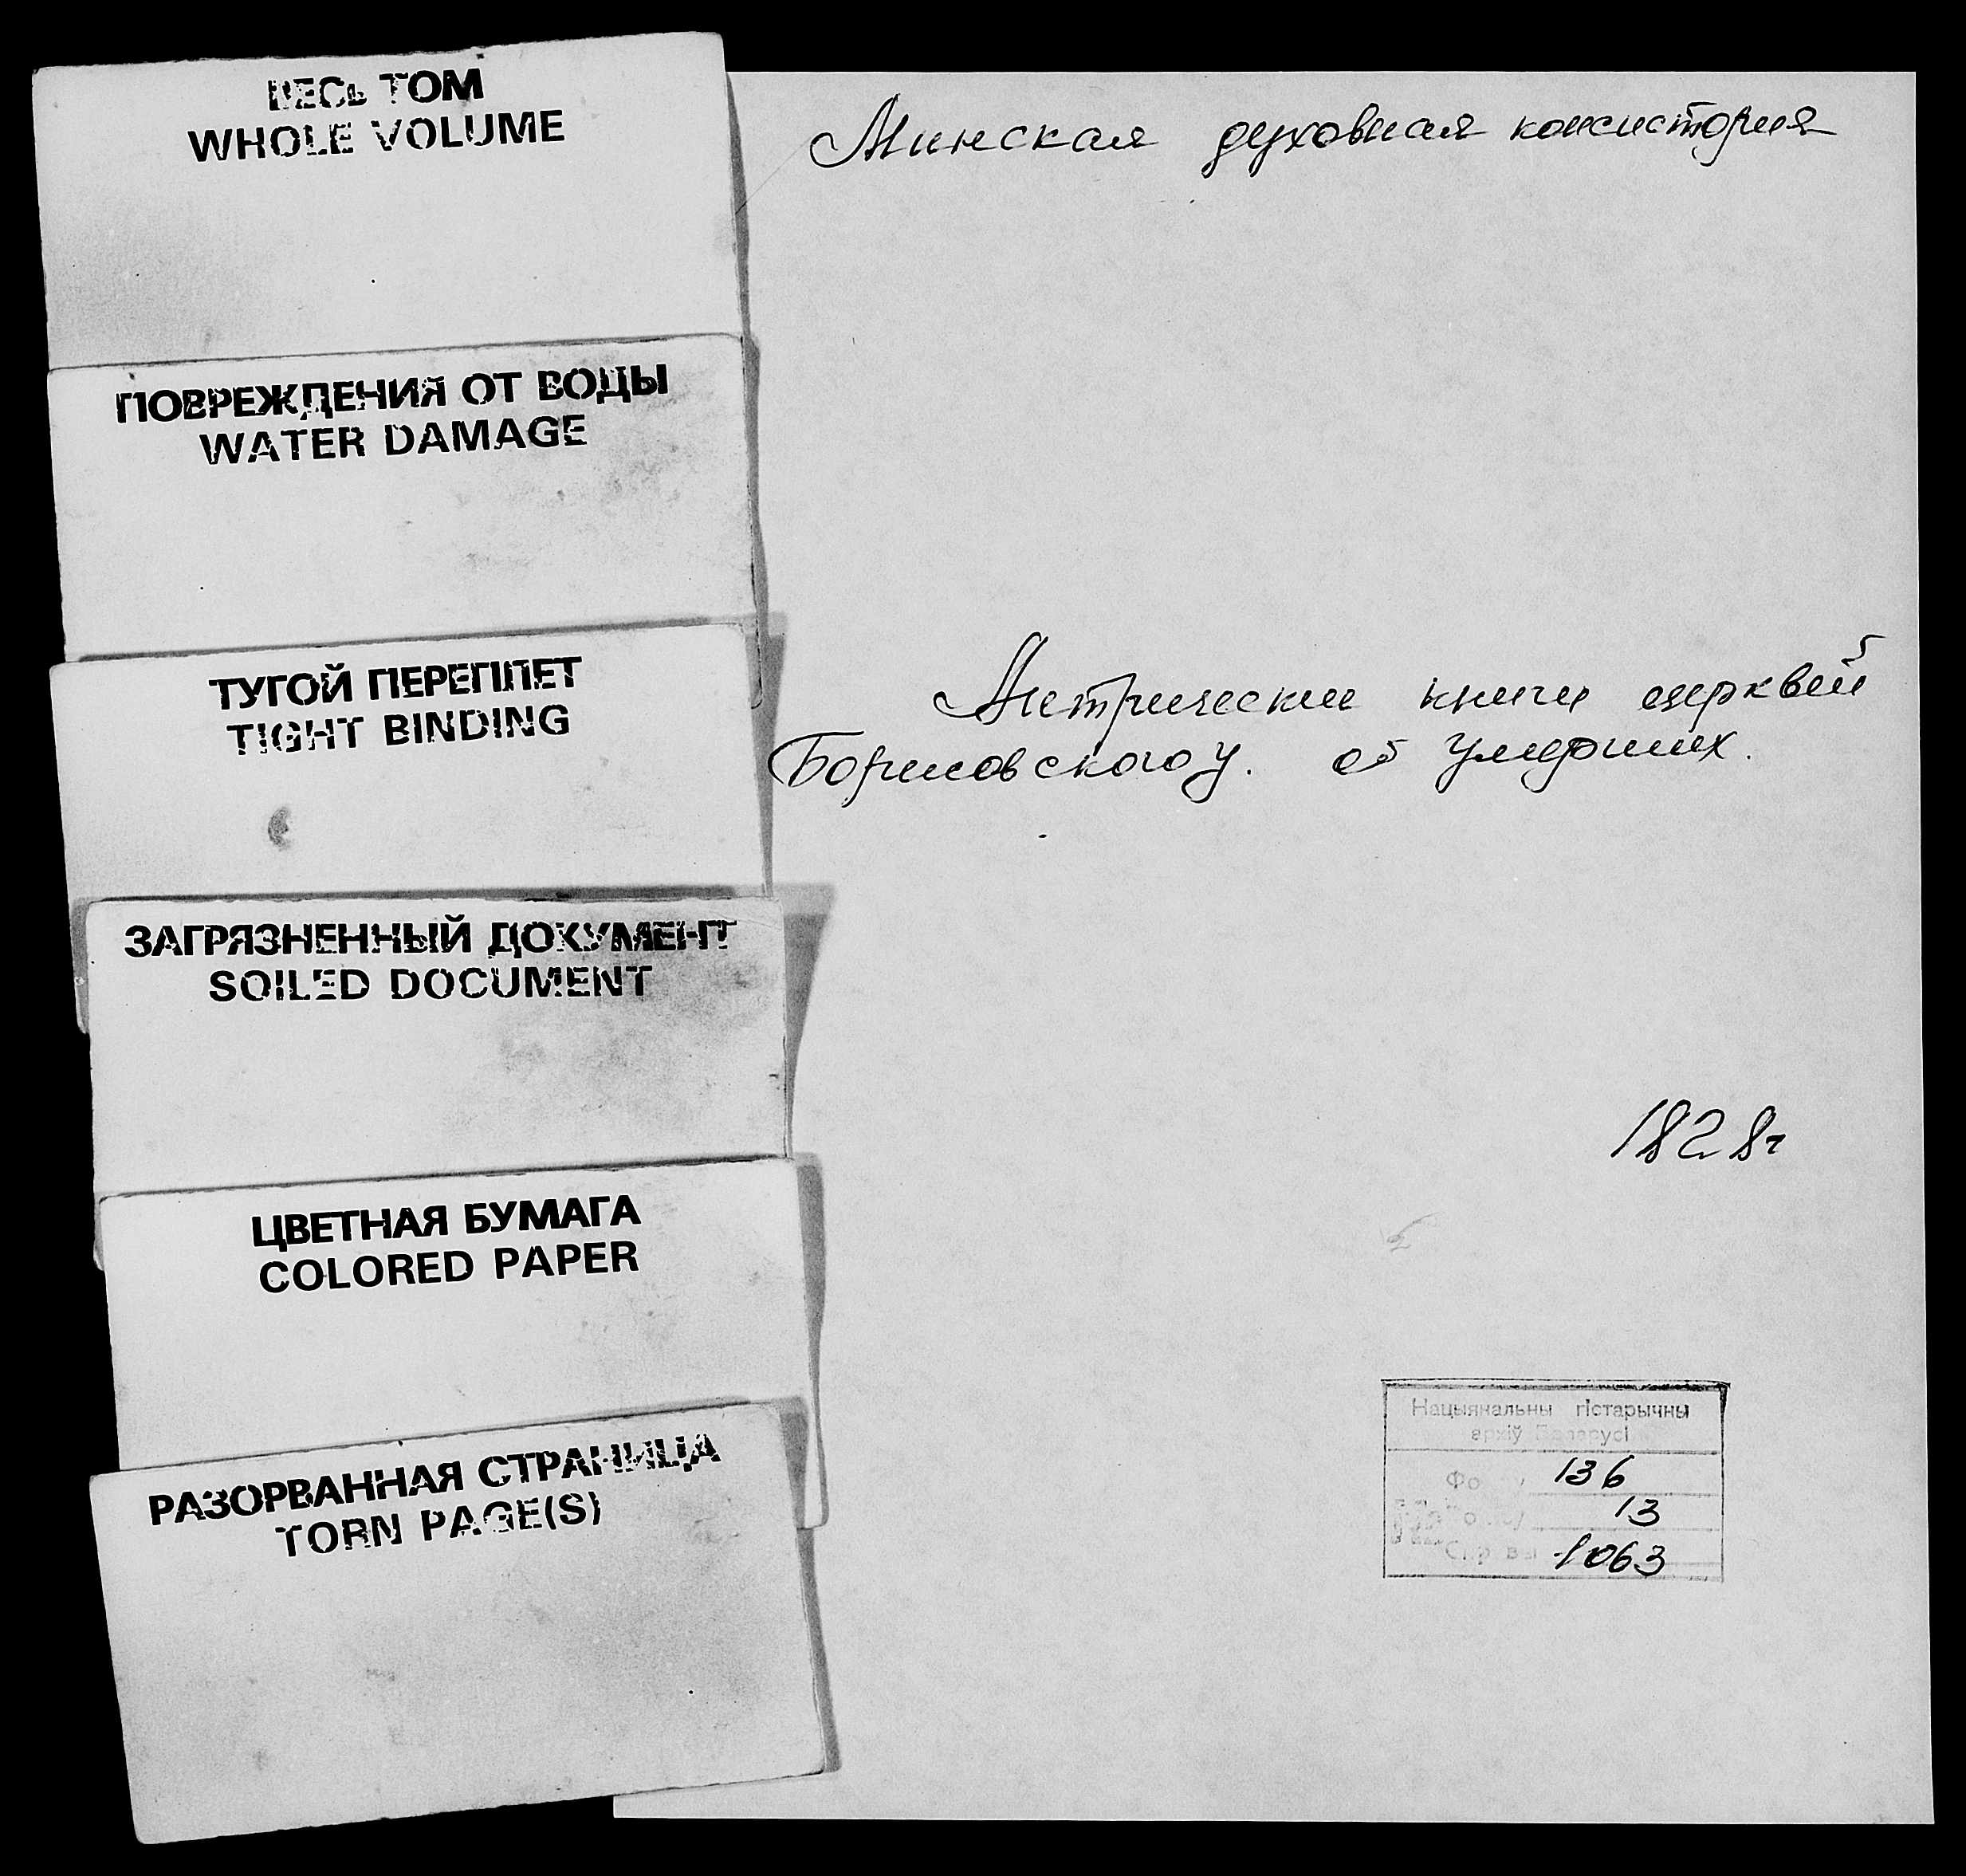 ВЕСЬ ТОМ
WHOLE VOLUME
ПОВРЕЖДЕНИЯ ОТ ВОДЫ
WATER DAMAGE
ТУГОЙ ПЕРЕПЛЕТ
TIGHT BINDING
ЗАГРЯЗНЕННЫЙ ДОКУМЕНТ
SOILED DOCUMENT
ЦВЕТНАЯ БУМАГА
COLORED PAPER
РАЗОРВАННАЯ СТРАНИЦА
TORN PAGE(S)
Минская духовная консистория
Метрически книги церквей
Борисовского у. об умерших.
1828г
Нацыянальны гістарычны
архіў Беларусі
136
13
1063